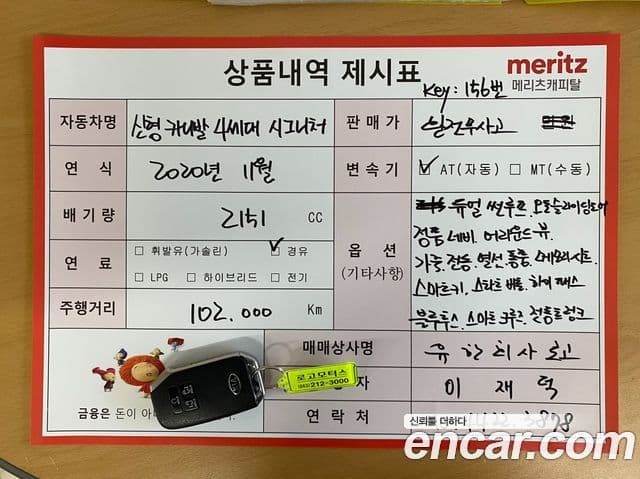 상품내역 제시표
meritz
메리츠캐피탈
Key: 156번
자동차명 신형 카니발 4세대 시그니처
판매가 실전무사고
연 식 2020년 11월
변속기 ☑ AT(자동) □ MT(수동)
배기량 2151 CC
옵션
(기타사항)
듀얼 썬루프, 오토슬라이딩도어
정품 네비. 어라운드 뷰.
가죽, 전동, 열선 통풍, 메모리시트
스마트키, 스타트 버튼, 하이패스
블루투스, 스마트 크루즈, 전동트렁크
연 료 □ 휘발유(가솔린) ☑ 경유
□ LPG □ 하이브리드 □ 전기
주행거리 102.000 Km
매매상사명 유한회사 로고
자 이재덕
연락처
금융은 돈이 아
로고모터스
212-3000
KIA
신뢰를 더하다
encar.com